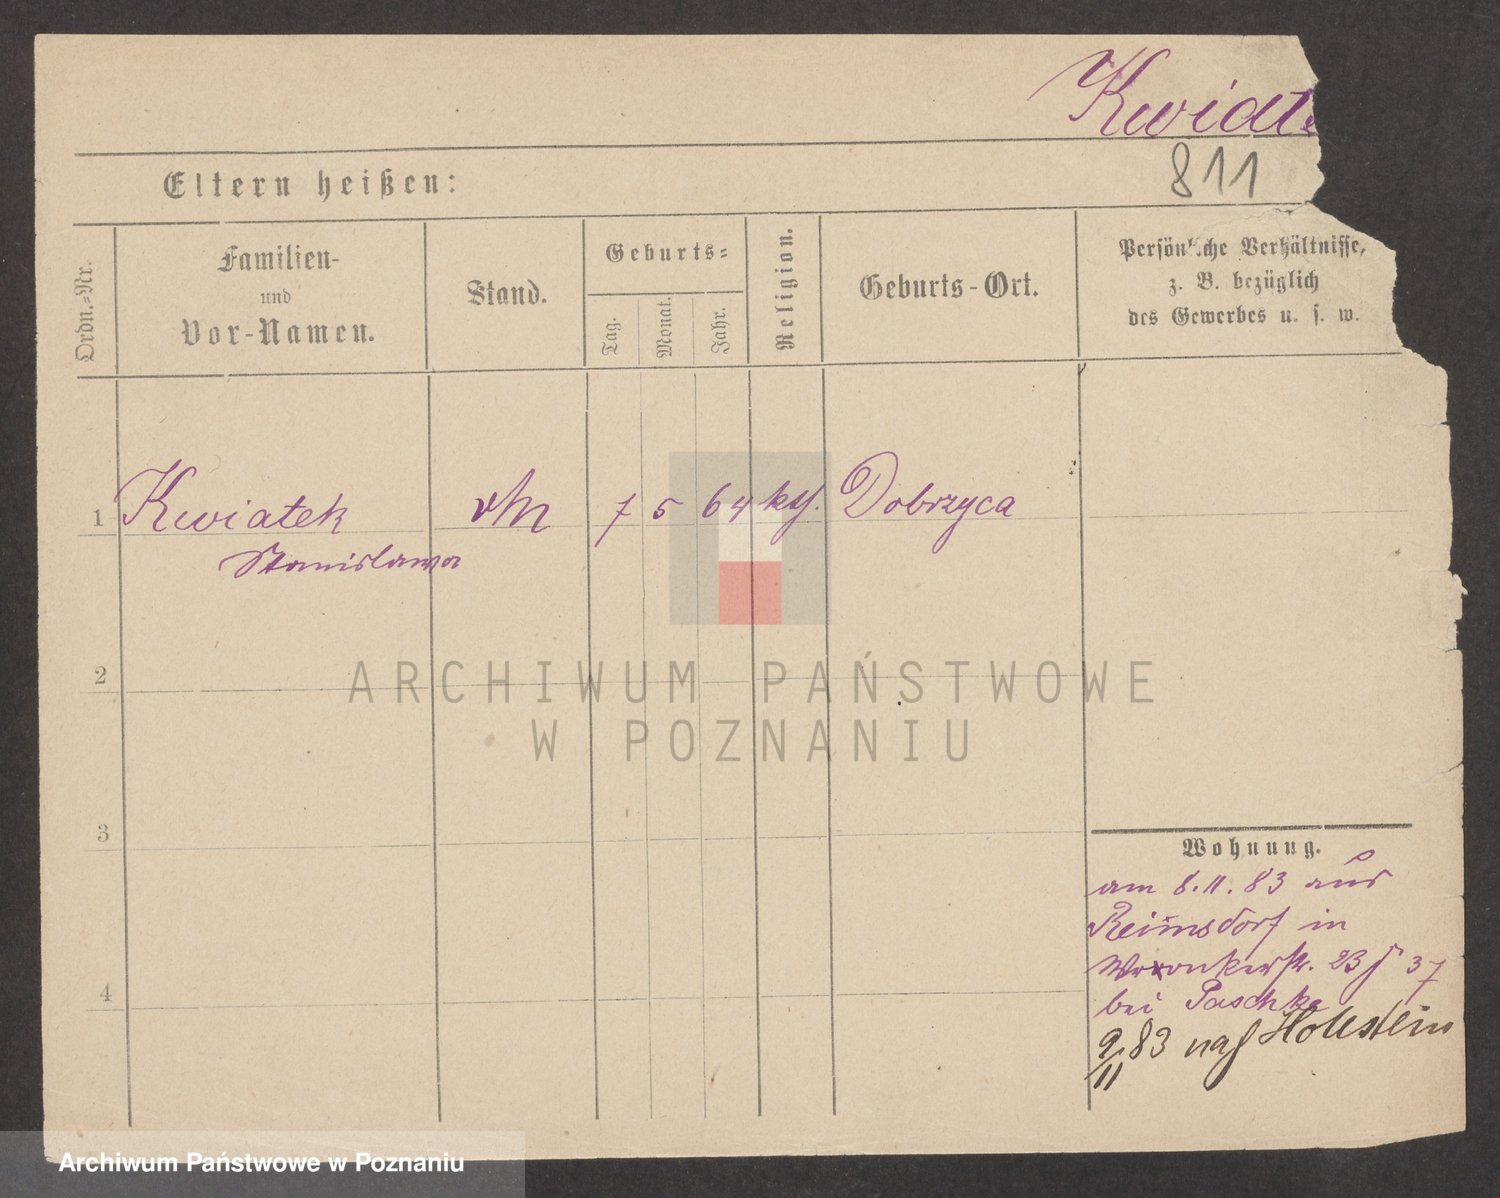 Kwiate
811
Eltern heißen:
Ordn.=Nr.
Familien-
und
Vor-Namen.
Stand.
Geburts=
Tag.
Monat.
Jahr.
Religion.
Geburts-Ort.
Persönliche Verhältnisse,
z. B. bezüglich
des Gewerbes u. s. w.
1 Kwiatek 7 5 64 kth. Dobrzyca
Stanislawa
2
ARCHIWUM PAŃSTWOWE
W POZNANIU
3
4
Wohnung.
am 6.11.83 aus
Reimsdorf in
Wronkerstr. 23 37
bei Paschke
9/11 83 nach Holstein
Archiwum Państwowe w Poznaniu